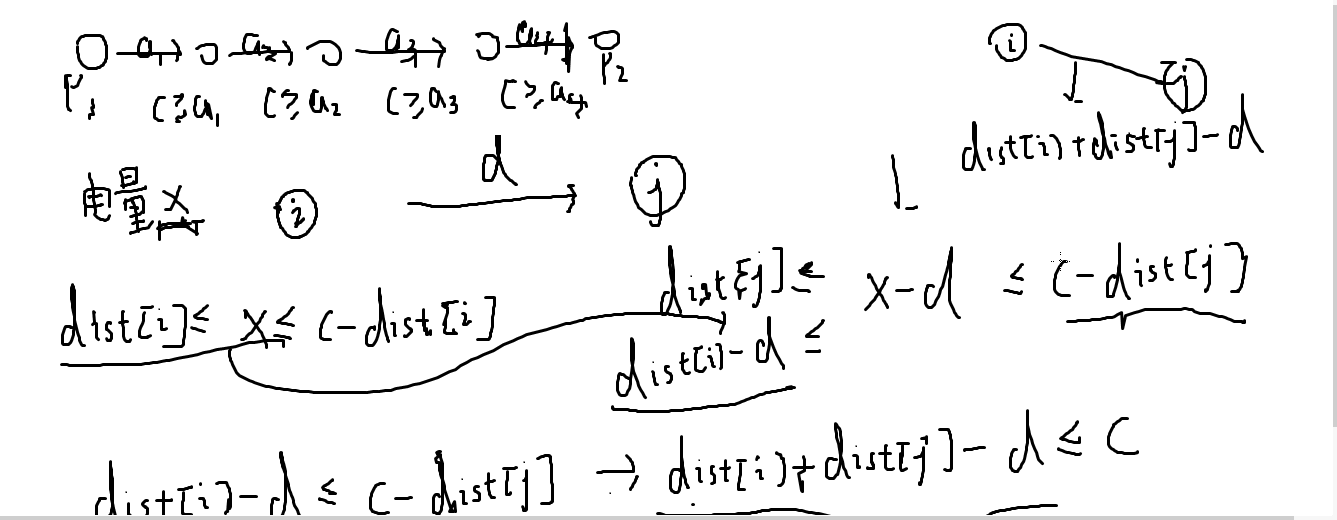 a₁ a₂ a₃ a₄ i
P₁ P₂ j
C≥a₁ C≥a₂ C≥a₃ C≥a₄ L
dist[i]+dist[j]-d
电量x i d j L
dist[i]≤ x≤ C-dist[i] dist[j]≤ x-d ≤ C-dist[j]
dist[i]-d ≤
dist[i]-d ≤ C-dist[j] → dist[i]+dist[j]-d≤C